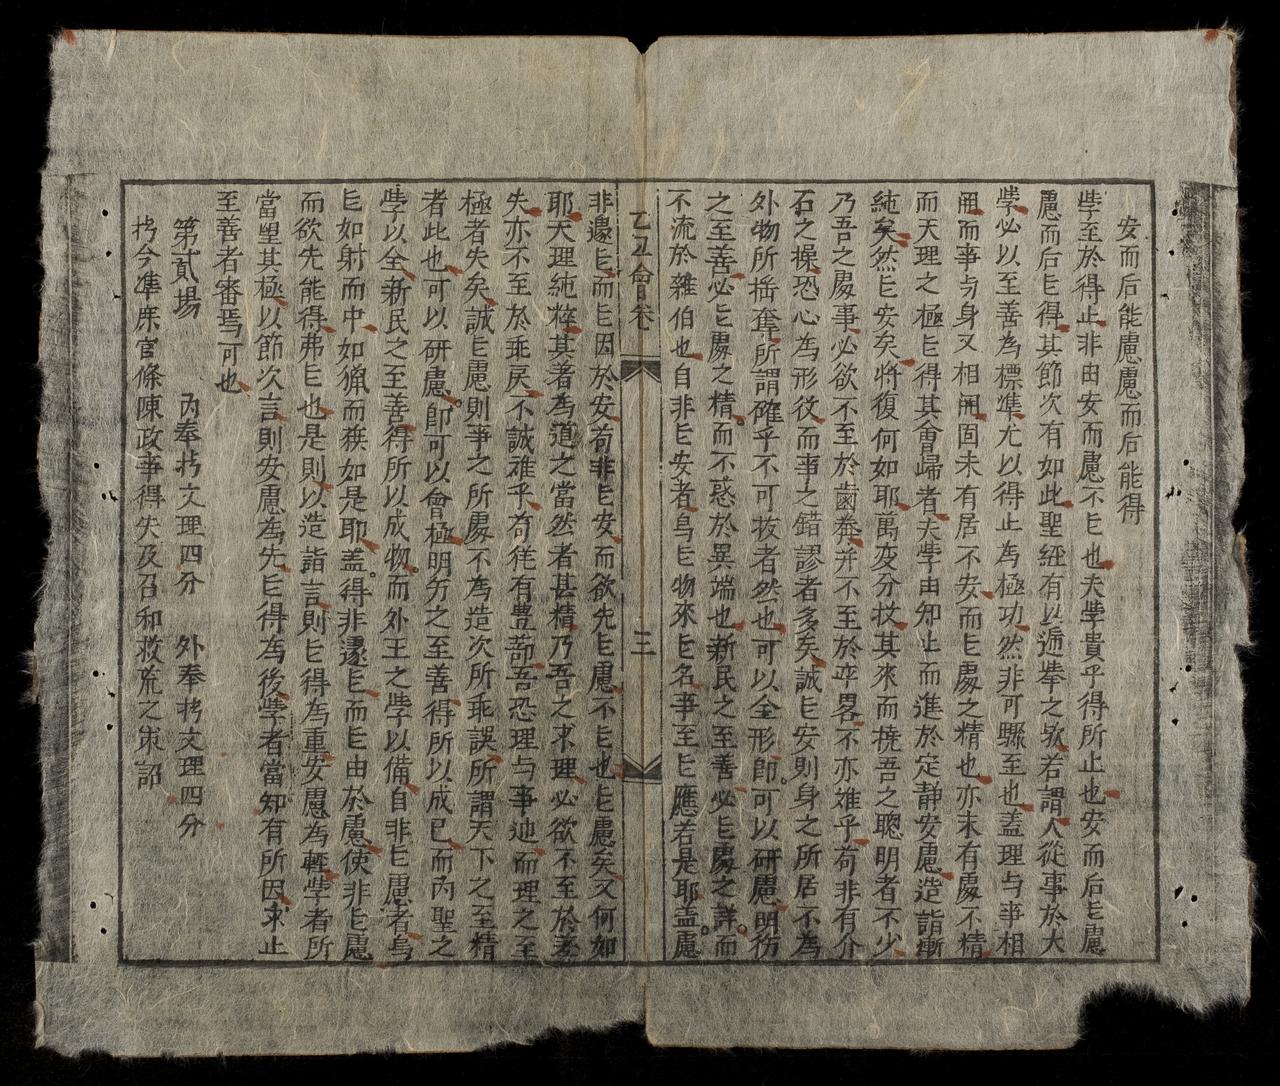 安而后能慮慮而后能得
學至於得止非由安而慮不能也夫學貴乎得所止也安而后能慮
慮而后能得其節次有如此聖經有以遍舉之歟若謂人從事於大
學必以至善為標準尤以得止為極功然非可驟至也蓋理与事相
因而事与身又相因固未有居不安而能處之精也亦未有處不精
而天理之極能得其會歸者夫學由知止而進於定静安慮造詣漸
純矣然能安矣將復何如耶萬変分投其來而撓吾之聰明者不少
乃吾之處事必欲不至於鹵莽并不至於率畧不亦难乎苟非有介
石之操恐心為形役而事之錯謬者多矣誠能安則身之所居不為
外物所搖奪所謂確乎不可拔者然也可以全形即可以研慮明徳
之至善必能處之精而不惑於異端也新民之至善必能處之詳而
不流於雜伯也自非能安者烏能物來能名事至能應若是耶盖慮
乙丑會卷 三
非遽能而能因於安苟非能安而欲先能慮不能也能慮矣又何如
耶天理純粹其著為道之當然者甚精乃吾之求理必欲不至於差
失亦不至於乖戾不誠难乎苟徒有豊蔀吾恐理与事迆而理之至
極者失矣誠能慮則事之所處不為造次所乖誤所謂天下之至精
者此也可以研慮即可以會極明徳之至善得所以成已而内聖之
學以全新民之至善得所以成物而外王之學以備自非能慮者烏
能如射而中如獵而獲如是耶盖得非遽能而能由於慮使非能慮
而欲先能得弗能也是則以造詣言則能得為重安慮為輕學者所
當望其極以節次言則安慮為先能得為後學者當知有所因求止
至善者審焉可也
第貳場 内奉批文理四分 外奉批文理四分
批今準庶官條陳政事得失及召和救荒之策詔